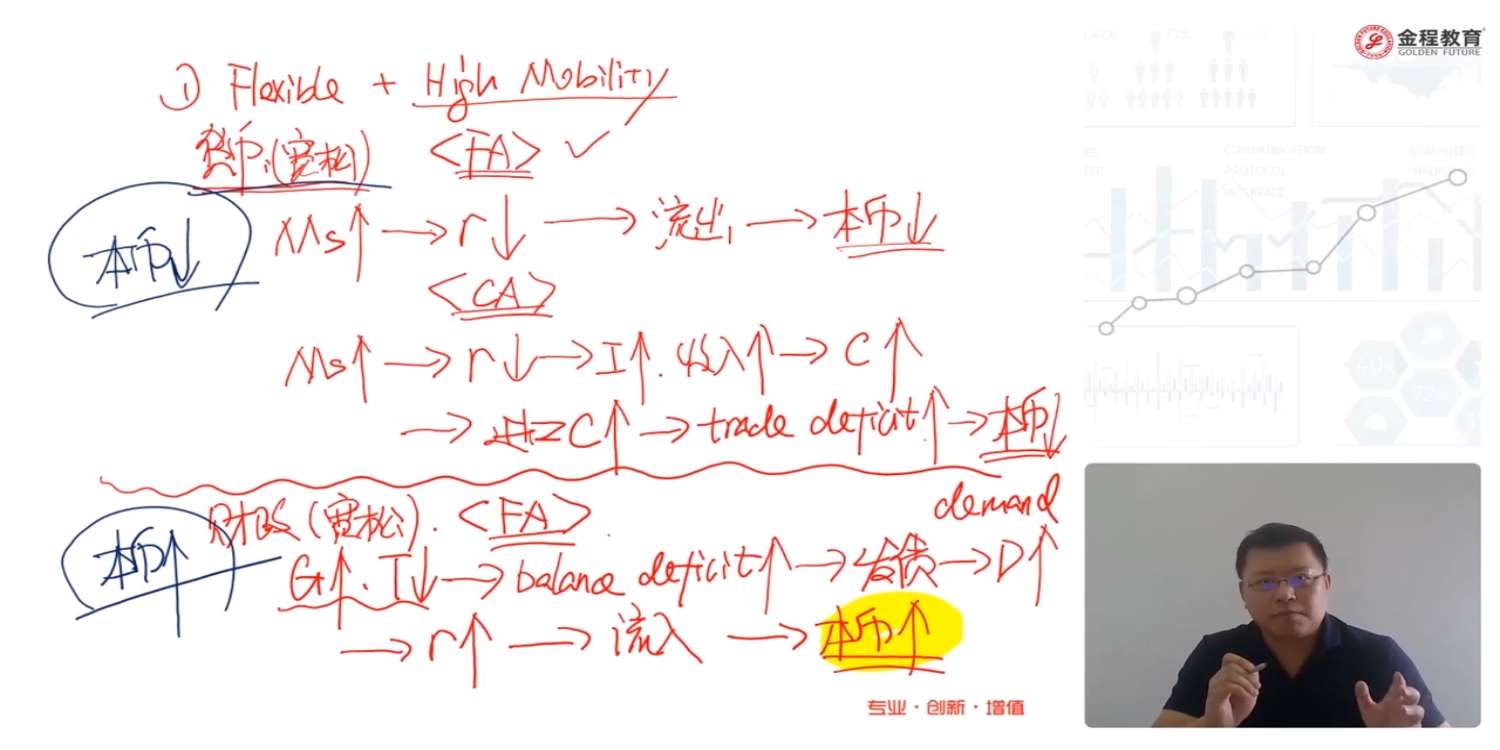 金程教育
GOLDEN FUTURE
① Flexible + High Mobility
货币.(宽松) <FA> ✓
本币↓
Ms↑ → r↓ → 流出, → 本币↓
<CA>
Ms↑ → r↓ → I↑. 收入↑ → C↑
→ 进口C↑ → trade deficit↑ → 本币↓
财政 (宽松). <FA>
demand
本币↑
G↑. T↓ → balance deficit↑ → 发债 → D↑
→ r↑ → 流入 → 本币↑
专业·创新·增值
COMMUNICATION
PROTOCOL
INTERFACE